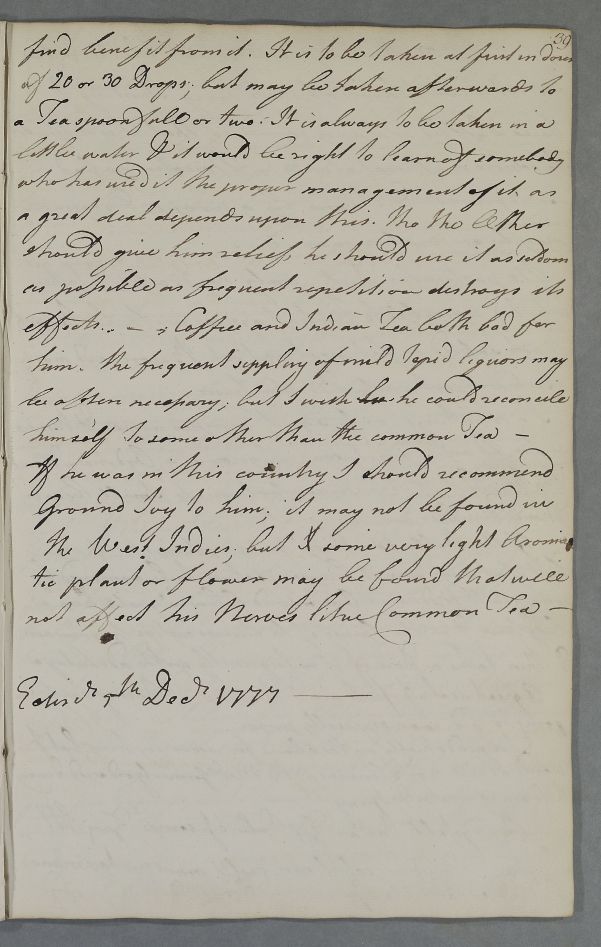 39
find benefit from it. It is to be taken at first in doses
of 20 or 30 Drops; but may be taken afterwards to
a Teaspoonfull or two. It is always to be taken in a
little water & it would be right to learn of somebody
who has used it the proper management of it as
a great deal depends upon this. Tho the Æther
should give him relief he should use it as seldom
as possible as frequent repetition destroys its
effects. – ; Coffee and Indian Tea both bad for
him. The frequent sippling of mild tepid liquors may
be often necessary; but I wish he could reconcile
himself to some other than the common Tea –
If he was in this country I should recommend
Ground Ivy to him; it may not be found in
the West Indies; but some very light Aroma
tic plant or flower may be found that will
not affect his Nerves like Common Tea –
Edinr. 5th Decr 1777